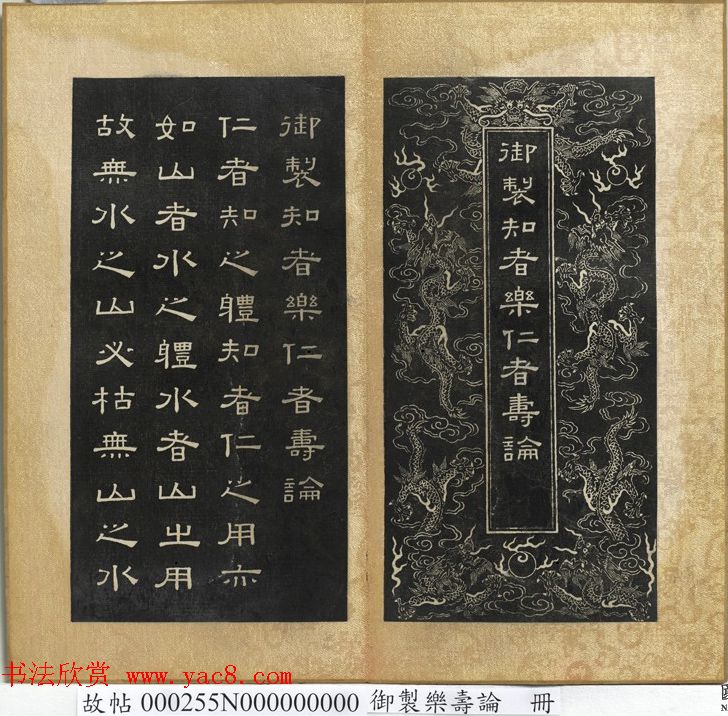 御製知者樂仁者壽論
御製知者樂仁者壽論
仁者知之軆知者仁之用亦
如山者水之軆水者山之用
故無水之山必枯無山之水
书法欣赏 www.yac8.com
故帖 000255N000000000 御製樂壽論 冊